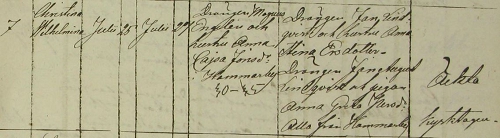 7
Christina
Wilhelmina
Julii 25 Julii 27
Drängen Magnus
Englin och
hustru Anna
Cajsa Jonsd:
Hammarby
40-44
Drängen Jan Lind-
qvist och hustru Anna
Stina Ersdotter.
Drängen
Lindqvist och pigan
Anna Greta Jansd:
Alla från Hammarby
Äckta
kyrktagen